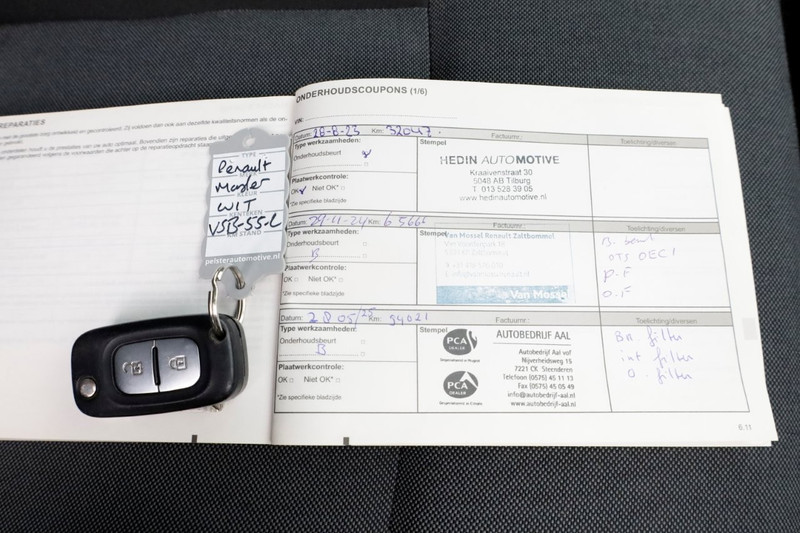 REPARATIES
TYPE
Renault
Master
KLEUR
WIT
KENTEKEN
VSB-55-L
KM STAND
pelsterautomotive.nl
ONDERHOUDSCOUPONS (1/6)
VIN:
Datum: 28-8-23 Km: 32047. Factuurnr.: Toelichting/diversen
Type werkzaamheden:
Onderhoudsbeurt
Plaatwerkcontrole:
OK Niet OK*
*Zie specifieke bladzijde
Stempel
HEDIN AUTOMOTIVE
Kraaivenstraat 30
5048 AB Tilburg
T. 013 528 39 05
www.hedinautomotive.nl
Datum: 29-11-24 Km: Factuurnr.: Toelichting/diversen
Type werkzaamheden:
Onderhoudsbeurt
B
Plaatwerkcontrole:
OK Niet OK*
*Zie specifieke bladzijde
Stempel
Van Mossel Renault Zaltbommel
Van Mossel
B. beurt
P.F
O.F
Datum: 28 05/25 Km: 94021 Factuurnr.: Toelichting/diversen
Type werkzaamheden:
Onderhoudsbeurt
B
Plaatwerkcontrole:
OK Niet OK*
*Zie specifieke bladzijde
Stempel
PCA
DEALER
PCA
DEALER
AUTOBEDRIJF AAL
Autobedrijf Aal vof
Nijverheidsweg 16
7221 CK Steenderen
Telefoon (0575) 45 11 13
Fax (0575) 45 05 49
info@autobedrijf-aal.nl
www.autobedrijf-aal.nl
Br. filter
int filter
O. filter
6.11